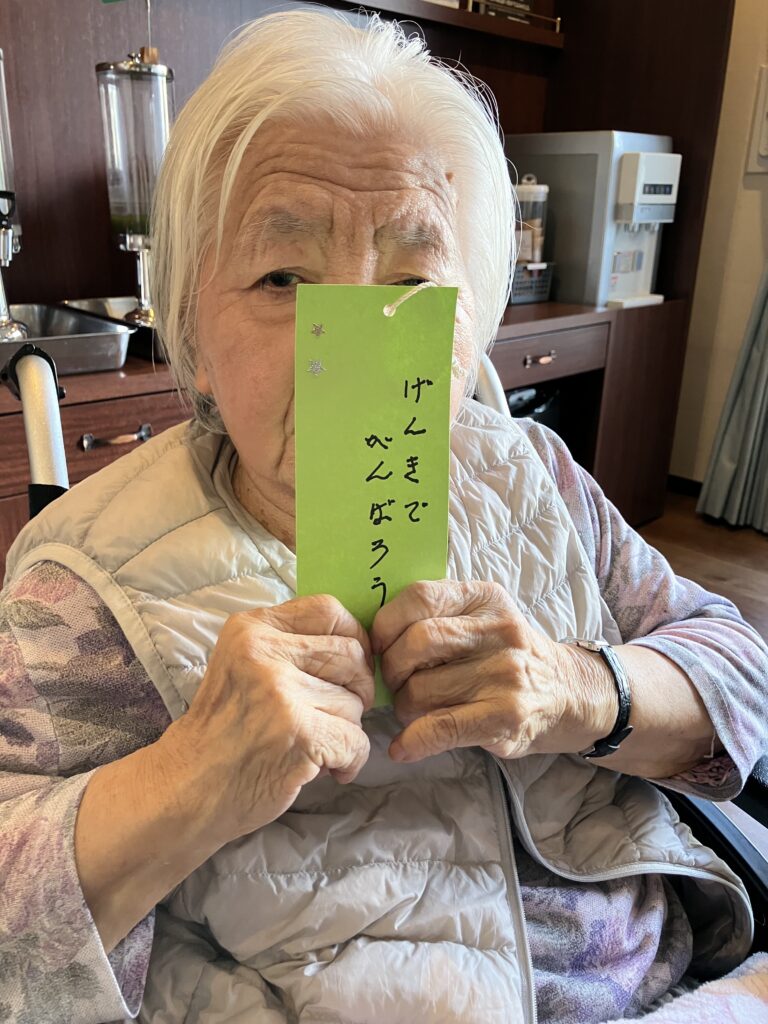 げんきで
がんばろう